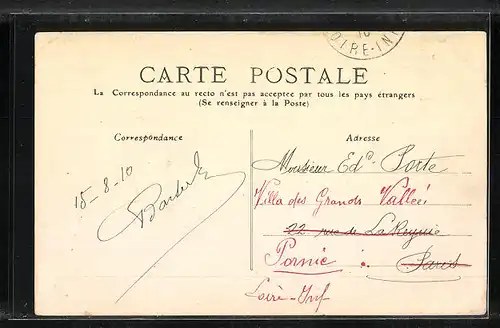 10
OIRE-INF
CARTE POSTALE
La Correspondance au recto n'est pas acceptée par tous les pays étrangers
(Se renseigner à la Poste)
Correspondance
Adresse
15-8-10
Monsieur Edd. Porte
Villa des Grands Vallée
22 rue de La Reynie
Pornic à Paris
Loire-Inf